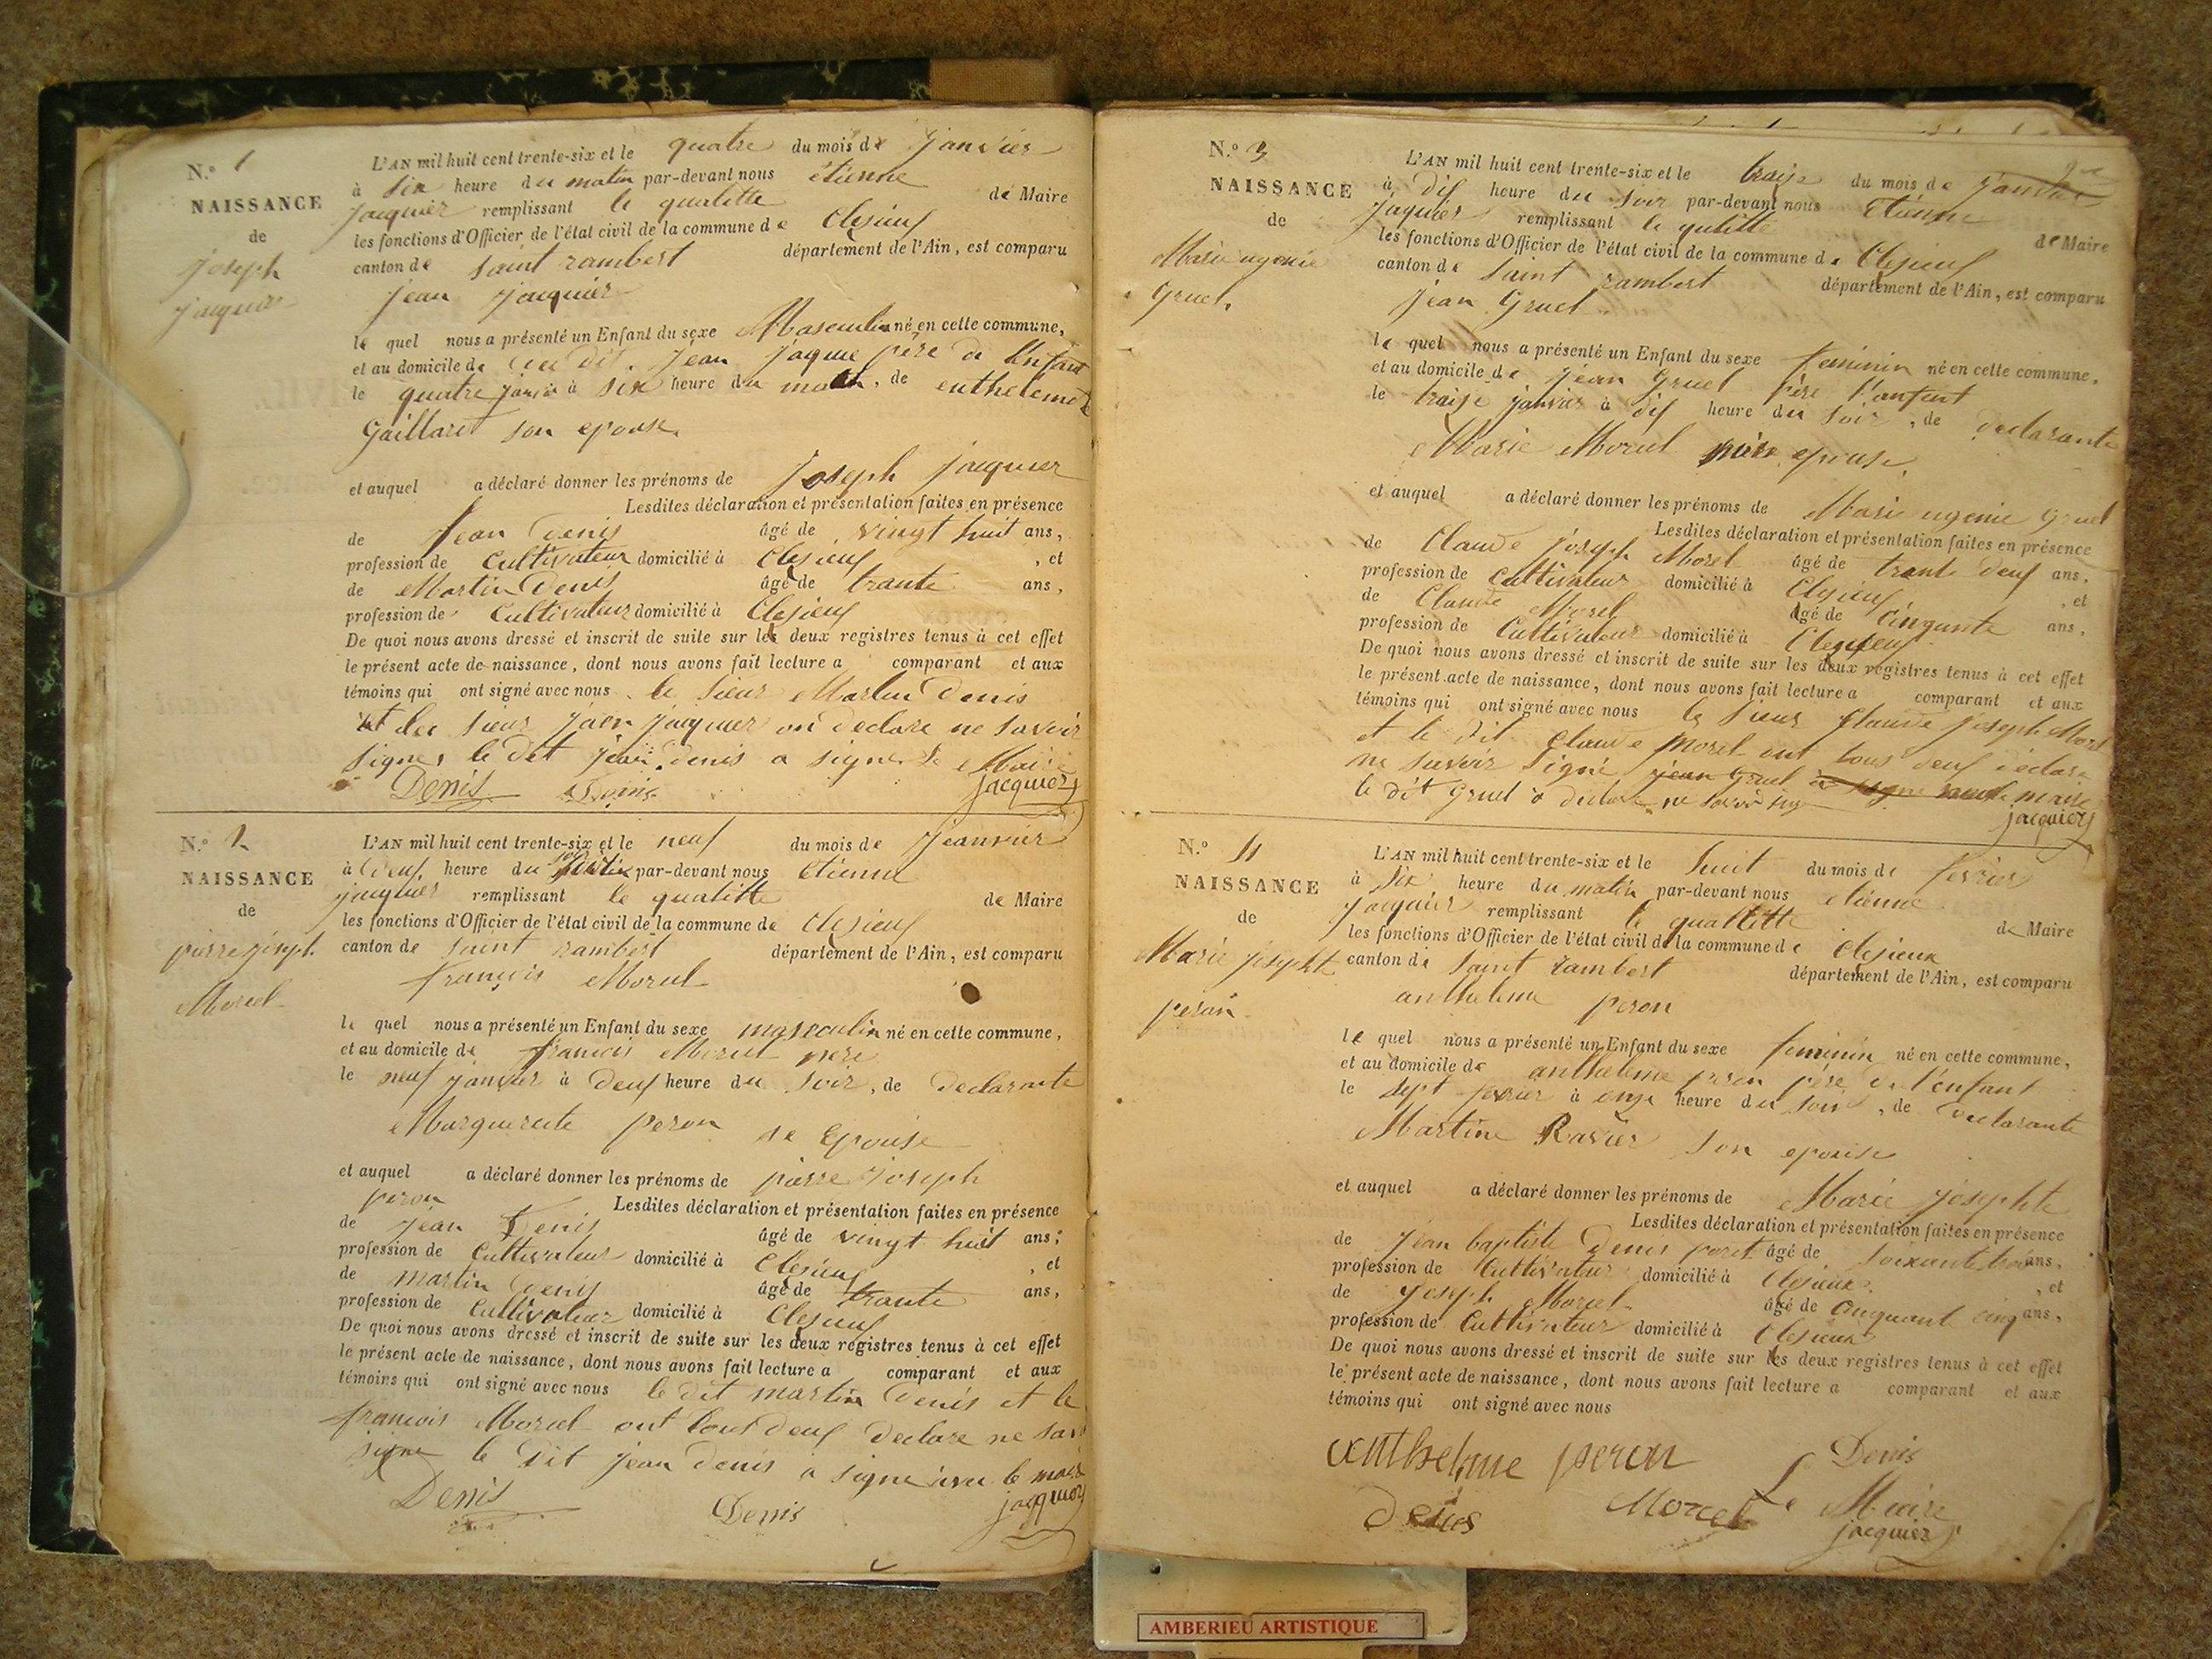 N.º 1
NAISSANCE
de
joseph
jaquier
L'AN mil huit cent trente-six et le quatre du mois de janvier
à six heure du matin par-devant nous étienne
jaquier remplissant le qualitte de Maire
les fonctions d'Officier de l'état civil de la commune de Clesieuf
canton de saint rambert département de l'Ain, est comparu
jean jaquier
le quel nous a présenté un Enfant du sexe Masculin né en cette commune,
et au domicile de du dit jean jaquie père de lenfant
le quatre janvié à six heure du matin, de
Gaillard son epouse
et auquel a déclaré donner les prénoms de joseph jaquier
Lesdites déclaration et présentation faites en présence
de jean denis âgé de vingt huit ans,
profession de Cultivateur domicilié à Clesieuf , et
de Martin Denis âgé de trante ans,
profession de Cultivateur domicilié à Clesieuf
De quoi nous avons dressé et inscrit de suite sur les deux registres tenus à cet effet
le présent acte de naissance, dont nous avons fait lecture a comparant et aux
témoins qui ont signé avec nous le sieur Martin Denis
et les sieur jaen jaquier on declare ne savoir
signer le dit jean denis a signer le Maire
Denis Denis jacquier
N.º 2
NAISSANCE
de
pierre joseph
Morel
L'AN mil huit cent trente-six et le neuf du mois de jeanvier
à deuf heure du soir par-devant nous Etienne
jaquier remplissant le qualitte de Maire
les fonctions d'Officier de l'état civil de la commune de Clesieuf
canton de saint rambert département de l'Ain, est comparu
françois Morel
le quel nous a présenté un Enfant du sexe masculin né en cette commune,
et au domicile de francois Morel pere
le neuf janvier à deuf heure du soir, de declarante
Marguerite peron se epouse
et auquel a déclaré donner les prénoms de pierre joseph
peron Lesdites déclaration et présentation faites en présence
de jean Denis âgé de vingt huit ans;
profession de Cultivateur domicilié à Clesieuf , et
de martin Denis âgé de trante ans,
profession de Cultivateur domicilié à Clesieuf
De quoi nous avons dressé et inscrit de suite sur les deux registres tenus à cet effet
le présent acte de naissance, dont nous avons fait lecture a comparant et aux
témoins qui ont signé avec nous le dit martin Denis et le
francois Morel ont tout deuf declare ne sav
signe le dit jean Denis a signe avec le maire
Denis Denis jacquier
N.º 3
NAISSANCE
de
Marie ugenie
Gruel
L'AN mil huit cent trente-six et le traise du mois de janvier
à dif heure du soir par-devant nous Etienne
jaquier remplissant le qulitte de Maire
les fonctions d'Officier de l'état civil de la commune de Clesieuf
canton de saint rambert département de l'Ain, est comparu
jean Gruel
le quel nous a présenté un Enfant du sexe feminin né en cette commune,
et au domicile de jean Gruel père l'anfent
le traise janvier à dif heure du soir, de declarante
Marie Morel epouse
et auquel a déclaré donner les prénoms de Marie ugenie gruel
Lesdites déclaration et présentation faites en présence
de Claude joseph Morel âgé de trant deuf ans,
profession de Cultivateur domicilié à Clesieuf , et
de Claude Morel âgé de Cinquante ans,
profession de Cultivateur domicilié à Clesieuf
De quoi nous avons dressé et inscrit de suite sur les deux registres tenus à cet effet
le présent acte de naissance, dont nous avons fait lecture a comparant et aux
témoins qui ont signé avec nous le sieur Claude joseph Morel
et le dit Claude Morel ont tous deuf declare
ne savoir signé jean Gruel a signe maire
le dit Gruel a declare ne savoir sig
jacquier
N.º 4
NAISSANCE
de
Marie josephte
peron
L'AN mil huit cent trente-six et le huit du mois de fevrier
à six heure du matin par-devant nous etienne
jaquier remplissant le qualitte de Maire
les fonctions d'Officier de l'état civil de la commune de Clesieux
canton de saint rambert département de l'Ain, est comparu
anthelme peron
le quel nous a présenté un Enfant du sexe feminin né en cette commune,
et au domicile de anthelme peron père de l'enfant
le sept fevrier à onze heure du soir, de declarante
Martine Ravier son epouse
et auquel a déclaré donner les prénoms de Marie josephte
Lesdites déclaration et présentation faites en présence
de jean baptiste Denis âgé de soixante trois ans,
profession de Cultivateur domicilié à Clesieux , et
de joseph Morel âgé de cinquant cinq ans,
profession de Cultivateur domicilié à Clesieux
De quoi nous avons dressé et inscrit de suite sur les deux registres tenus à cet effet
le présent acte de naissance, dont nous avons fait lecture a comparant et aux
témoins qui ont signé avec nous
anthelme peron Denis
Denis Morel Le Maire
jacquier
AMBERIEU ARTISTIQUE